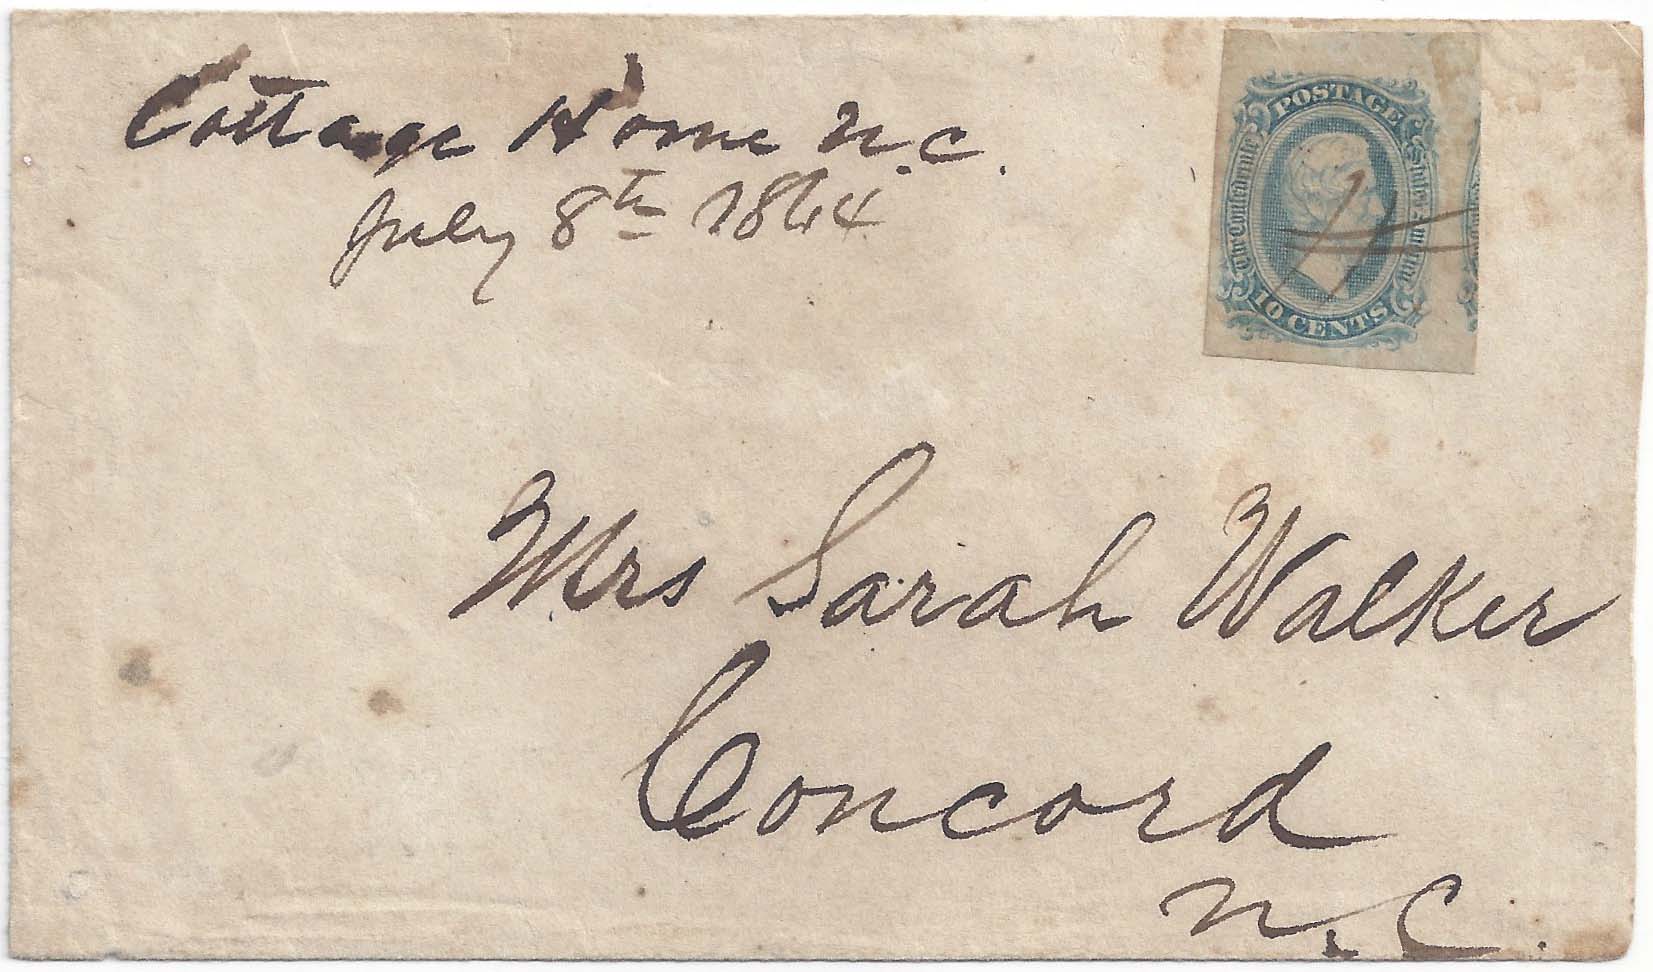 Cottage Home N.C.
July 8th 1864
POSTAGE
The Confederate States of America
10 CENTS
Mrs Sarah Walker
Concord
N.C.